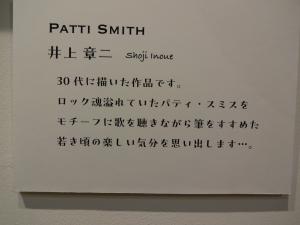 PATTI SMITH
井上 章二 Shoji Inoue
30代に描いた作品です。
ロック魂溢れていたパティ・スミスを
モチーフに歌を聴きながら筆をすすめた
若き頃の楽しい気分を思い出します…。